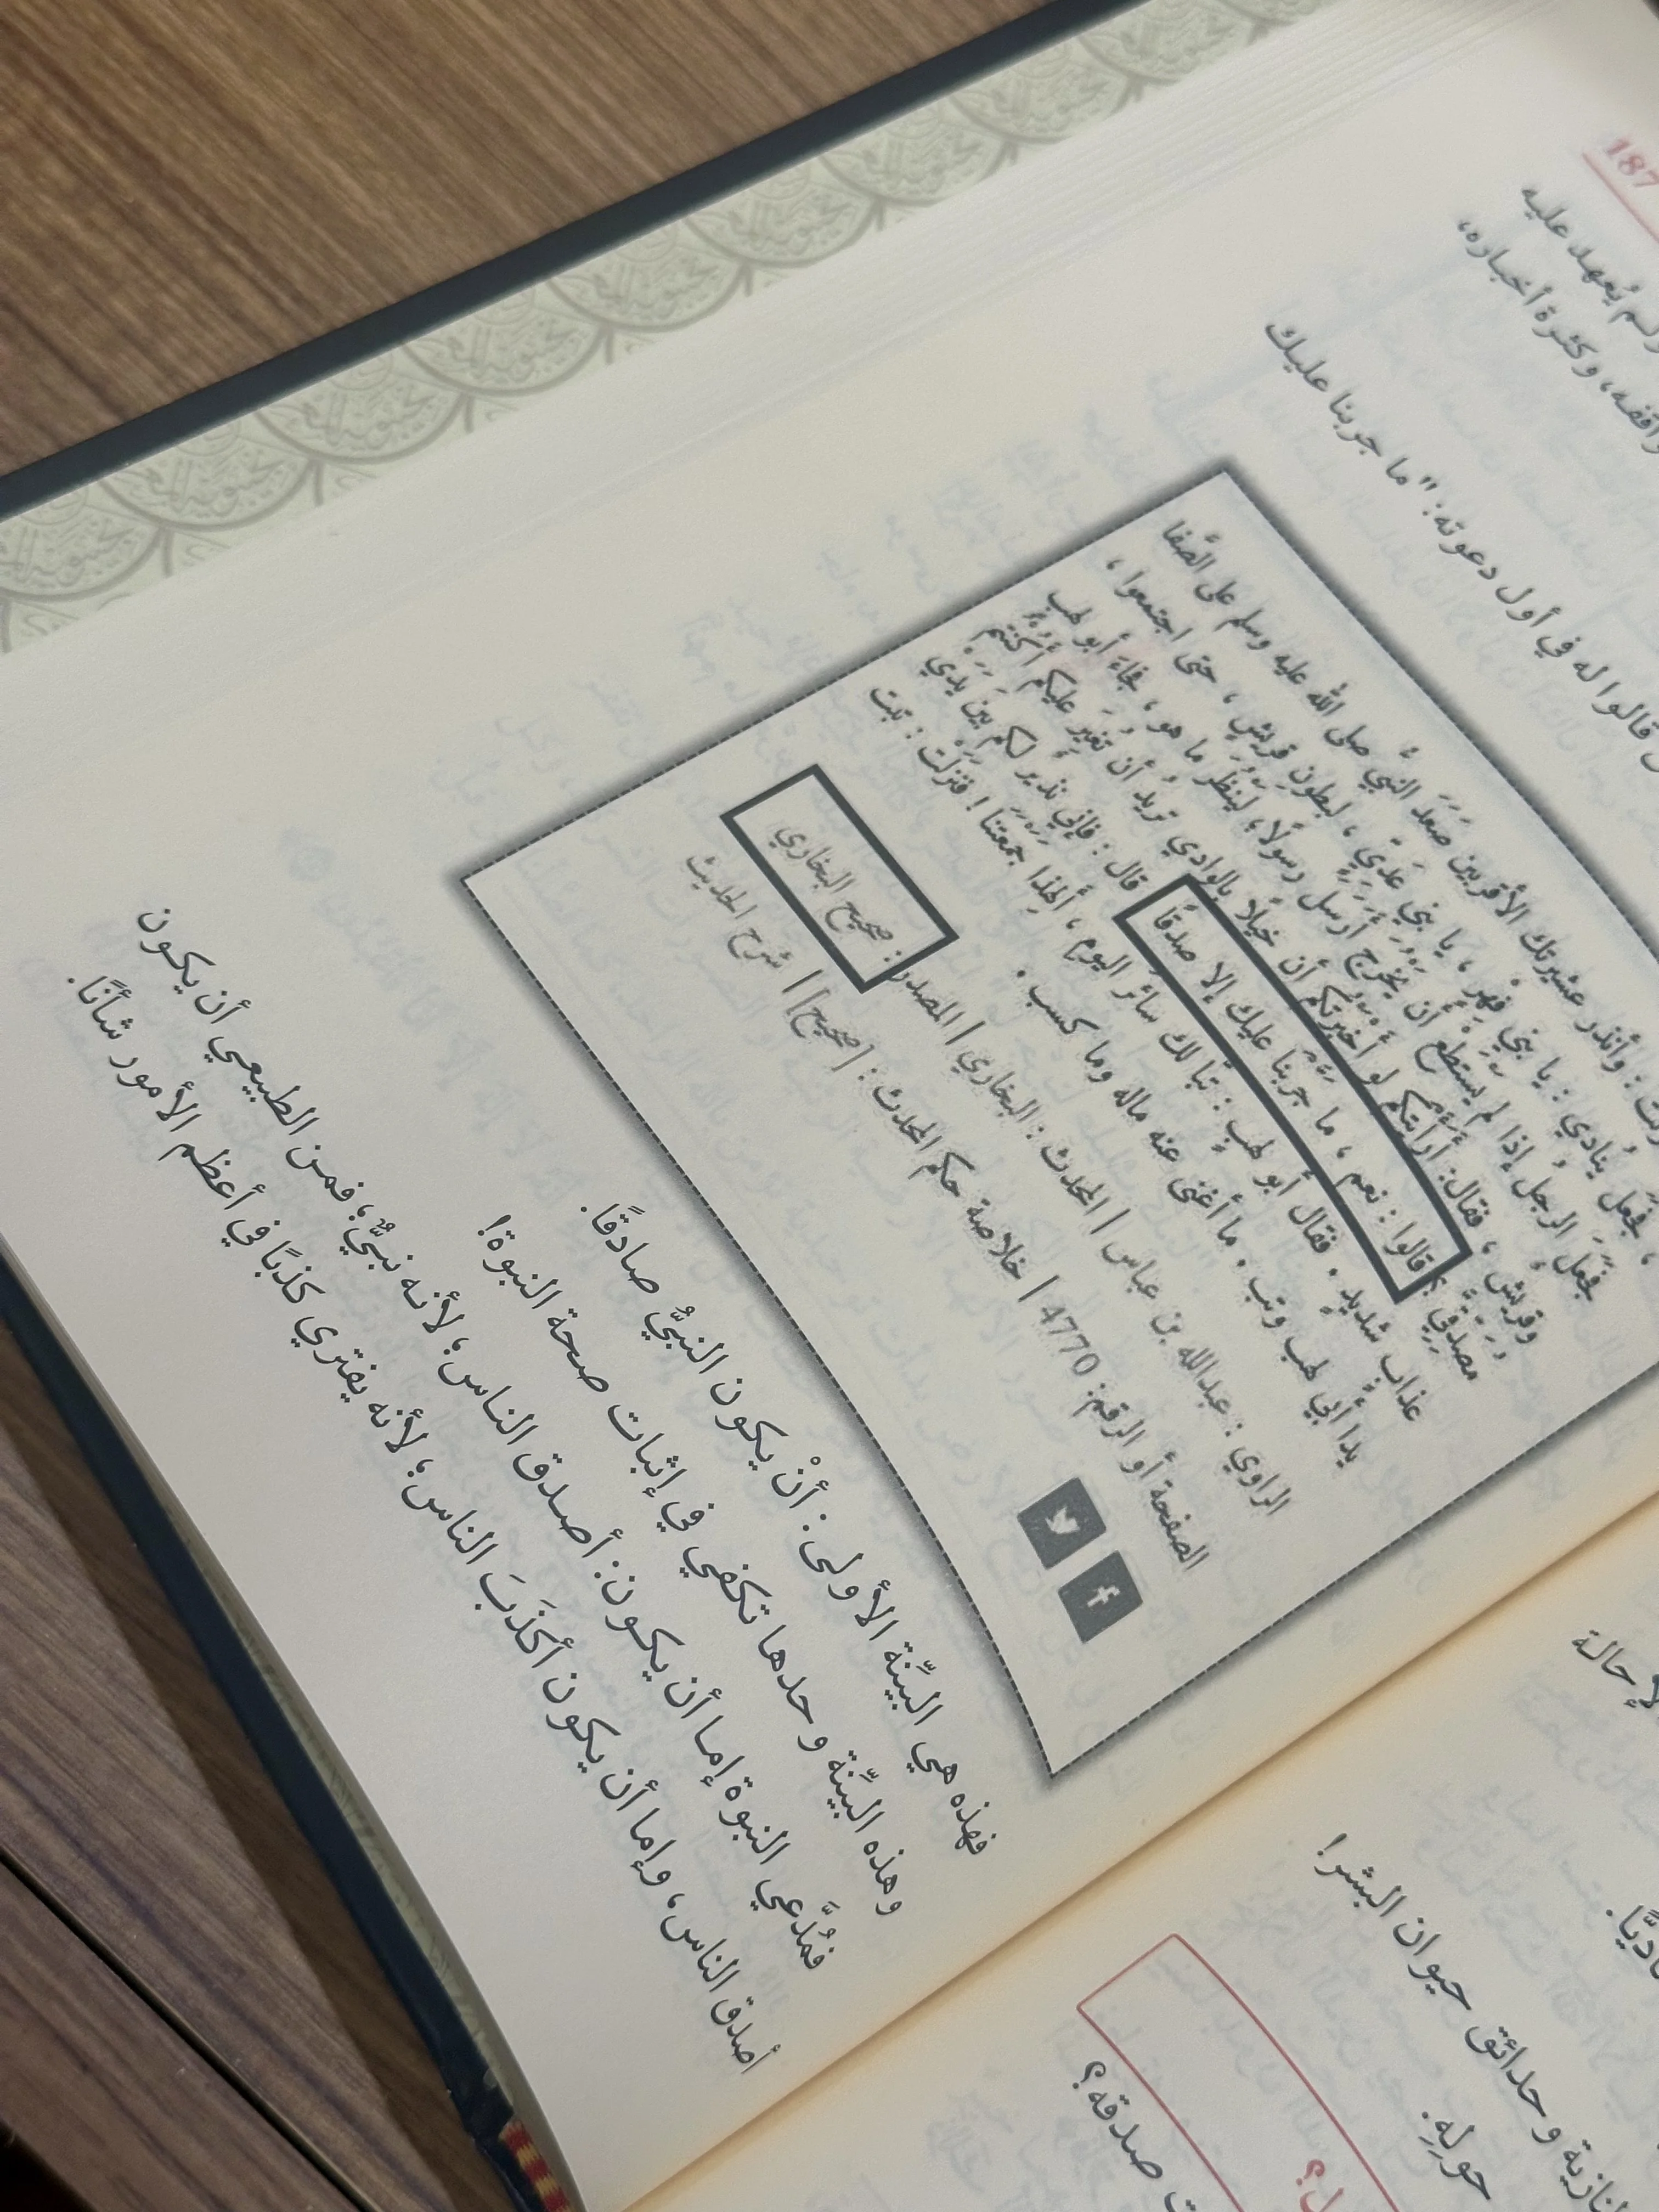 187
ولم يُعهد عليه
واقفه، وكثرة أخباره،
قالوا له في أول دعوته: "ما جربنا عليك
وأنذر عشيرتك الأقربين صَعِدَ النبيُّ صلى الله عليه وسلم على الصَّفا
، فجعل يُنادي: يا بني فِهرٍ، يا بني عَدِيٍّ، لبطونِ قريشٍ، حتى اجتمعوا،
فجعَلَ الرجلُ إذا لم يستطِعْ أن يَخرُجَ أرسل رسولًا، لينظُرَ ما هو، فجاءَ أبو لهبٍ
وقريشٌ، فقال: أرأيتكم لو أخبرتُكم أن خيلًا بالوادي تريدُ أن تُغِيرَ عليكم أكنتُم
مصدقيَّ؟ قالوا: نعم، ما جربنا عليك إلا صدقًا قال: فإني نذيرٌ لكم بين يدَي
عذابٍ شديدٍ. فقال أبو لهبٍ: تبًّا لك سائرَ اليومِ، ألهذا جمعتنا! فنزلت: تبت
يدا أبي لهب وتب. ما أغنى عنه ماله وما كسب.
الراوي: عبدالله بن عباس | المحدث: البخاري | المصدر: صحيح البخاري
الصفحة أو الرقم: 4770 | خلاصة حكم المحدث: [صحيح] | شرح الحديث
فهذه هي البيِّنة الأولى: أنْ يكون النبيُّ صادقًا.
وهذه البيِّنة وحدها تكفي في إثبات صحة النبوة!
فمُدَّعي النبوة إما أن يكون: أصدق الناس؛ لأنه نبيٌّ، فمن الطبيعي أن يكون
أصدق الناس، وإما أن يكون أكذَبَ الناس؛ لأنه يفتري كذبًا في أعظم الأمور شأنًا.
حالة
وحدائق حيوان البشر!
حولِهِ.
صدقه؟